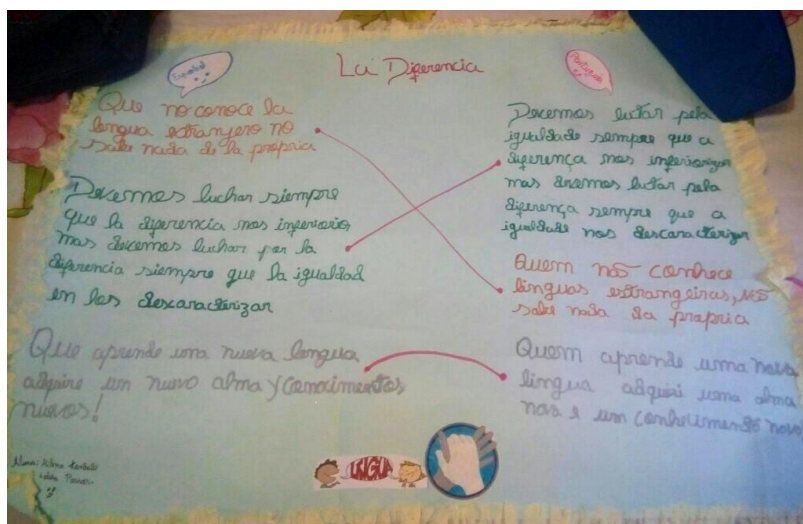 La Diferencia
Español
Que no conoce la
lengua estranjero no
sabe nada de la propria
Devemos luchar siempre
que la diferencia nos inferioriz
mas devemos luchar por la
diferencia siempre que la igualdad
en los descaracterizar
Que aprende una nueva lengua
adquire un nuevo alma y conocimentos
nuevos!
Português
Devemos lutar pela
igualdade sempre que a
diferença nos inferiorizar
mas devemos lutar pela
diferença sempre que a
igualdade nos descaracterizar
Quem não conhece
línguas estrangeiras, não
sabe nada da propria
Quem aprende uma nova
lingua adquiri uma alma
nova e um conhecimento novo
LINGUA